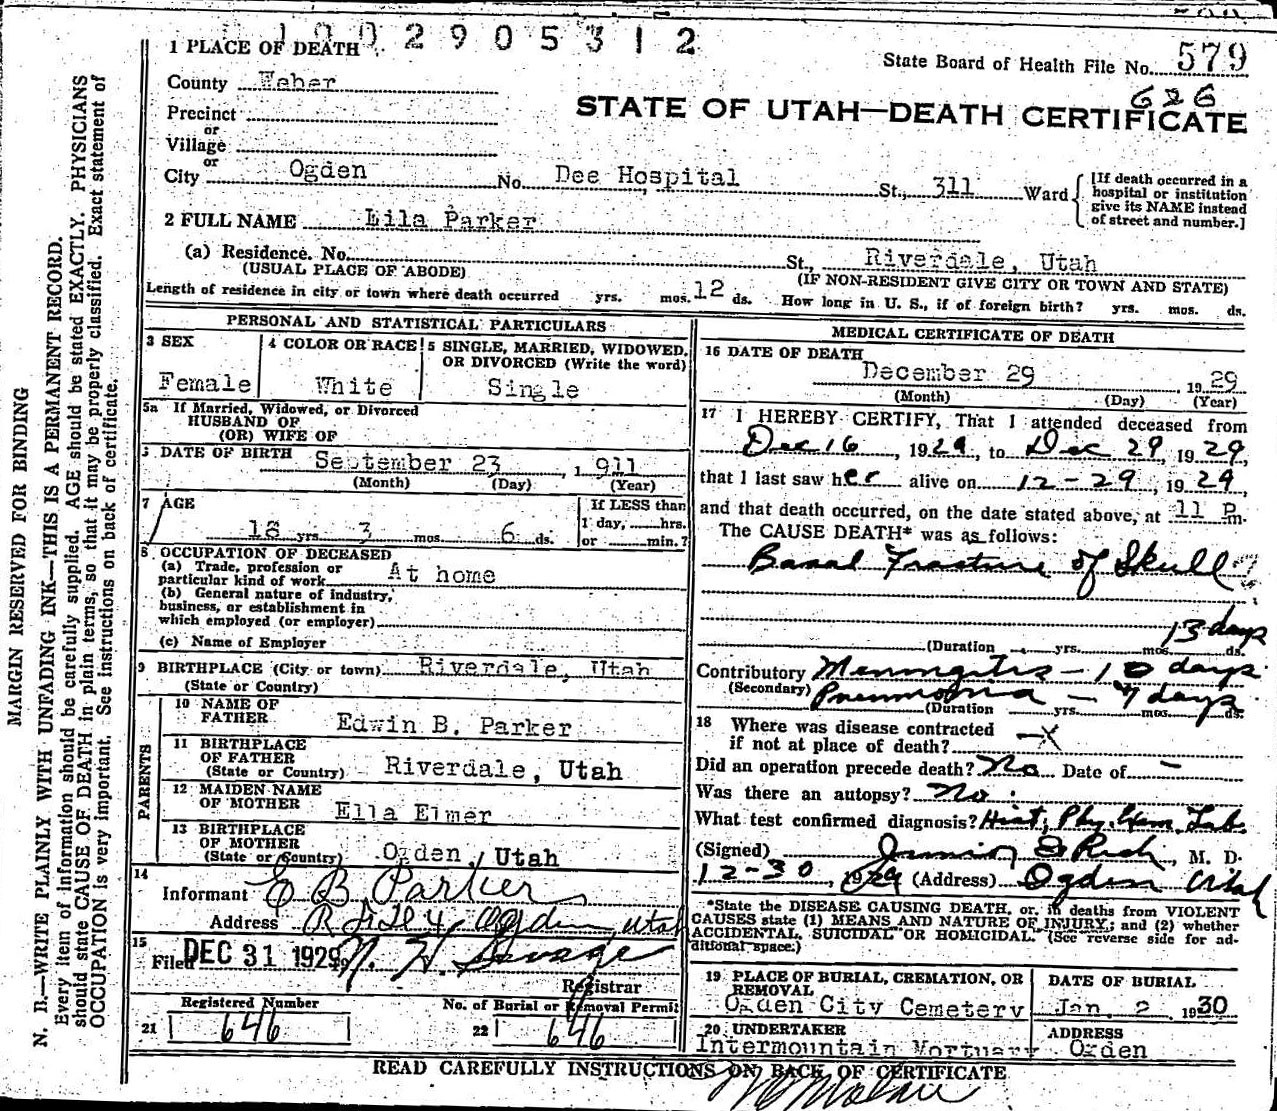 1002905312
State Board of Health File No. 579
626
STATE OF UTAH—DEATH CERTIFICATE
1 PLACE OF DEATH
County Weber
Precinct
or
Village
or
City Ogden No. Dee Hospital St., 311 Ward
[If death occurred in a
hospital or institution
give its NAME instead
of street and number.]
2 FULL NAME Lila Parker
(a) Residence. No. St., Riverdale, Utah
(USUAL PLACE OF ABODE) (IF NON-RESIDENT GIVE CITY OR TOWN AND STATE)
Length of residence in city or town where death occurred yrs. mos. 12 ds. How long in U. S., if of foreign birth? yrs. mos. ds.
PERSONAL AND STATISTICAL PARTICULARS
3 SEX
Female
4 COLOR OR RACE
White
5 SINGLE, MARRIED, WIDOWED,
OR DIVORCED (Write the word)
Single
5a If Married, Widowed, or Divorced
HUSBAND OF
(OR) WIFE OF
DATE OF BIRTH September 23, 1911
(Month) (Day) (Year)
7 AGE
18 yrs. 3 mos. 6 ds.
If LESS than
1 day, hrs.
or min.?
8 OCCUPATION OF DECEASED
(a) Trade, profession or
particular kind of work At home
(b) General nature of industry,
business, or establishment in
which employed (or employer)
(c) Name of Employer
9 BIRTHPLACE (City or town) Riverdale, Utah
(State or Country)
PARENTS
10 NAME OF
FATHER Edwin B. Parker
11 BIRTHPLACE
OF FATHER
(State or Country) Riverdale, Utah
12 MAIDEN NAME
OF MOTHER Ella Elmer
13 BIRTHPLACE
OF MOTHER
(State or Country) Ogden, Utah
14
Informant E B Parker
Address Ogden, Utah
15
Filed DEC 31 1929 N. H. Savage
Registrar
Registered Number
21 646
No. of Burial or Removal Permit
22 646
MEDICAL CERTIFICATE OF DEATH
16 DATE OF DEATH
December 29 1929
(Month) (Day) (Year)
17 I HEREBY CERTIFY, That I attended deceased from
Dec 16, 1929, to Dec 29, 1929,
that I last saw her alive on 12-29, 1929,
and that death occurred, on the date stated above, at 11 P m.
The CAUSE DEATH* was as follows:
Basal Fracture of Skull
13 days
(Duration yrs. mos. ds.
Contributory Meningitis - 10 days
(Secondary) Pneumonia - 7 days
(Duration yrs. mos. ds.
18 Where was disease contracted
if not at place of death? —x
Did an operation precede death? No Date of —
Was there an autopsy? No.
What test confirmed diagnosis? Hist, Phy. Exm. Lab.
(Signed) Junior E Rich, M. D.
12-30, 1929 (Address) Ogden Utah
*State the DISEASE CAUSING DEATH, or, in deaths from VIOLENT
CAUSES state (1) MEANS AND NATURE OF INJURY; and (2) whether
ACCIDENTAL, SUICIDAL OR HOMICIDAL. (See reverse side for ad-
ditional space.)
19 PLACE OF BURIAL, CREMATION, OR
REMOVAL
Ogden City Cemetery
DATE OF BURIAL
Jan. 2, 1930
20 UNDERTAKER
Intermountain Mortuary
ADDRESS
Ogden
READ CAREFULLY INSTRUCTIONS ON BACK OF CERTIFICATE
MARGIN RESERVED FOR BINDING
N. B.—WRITE PLAINLY WITH UNFADING INK—THIS IS A PERMANENT RECORD.
Every item of information should be carefully supplied. AGE should be stated EXACTLY. PHYSICIANS
should state CAUSE OF DEATH in plain terms, so that it may be properly classified. Exact statement of
OCCUPATION is very important. See instructions on back of certificate.